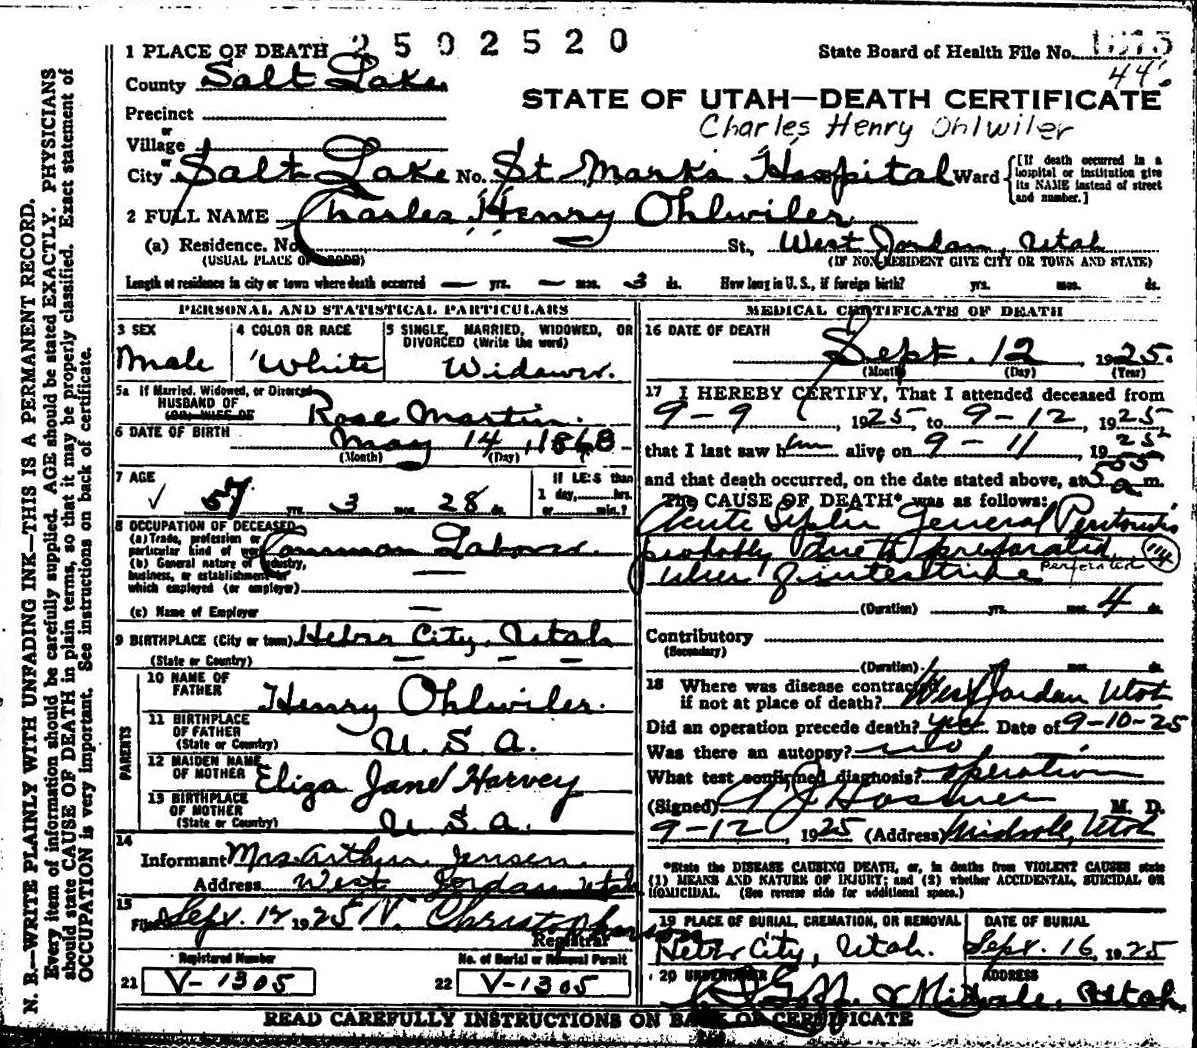 1 PLACE OF DEATH 2502520 State Board of Health File No.
County Salt Lake 446
STATE OF UTAH—DEATH CERTIFICATE
Precinct
Charles Henry Ohlwiler
or
Village
or
City Salt Lake No. St Marks Hospital Ward [If death occurred in a hospital or institution give its NAME instead of street and number.]
2 FULL NAME Charles Henry Ohlwiler
(a) Residence. No. St., West Jordan, Utah
(USUAL PLACE OF ABODE) (IF NON-RESIDENT GIVE CITY OR TOWN AND STATE)
Length of residence in city or town where death occurred — yrs. — mos. 3 ds. How long in U. S., if foreign birth? yrs. mos. ds.
PERSONAL AND STATISTICAL PARTICULARS
3 SEX
Male
4 COLOR OR RACE
White
5 SINGLE, MARRIED, WIDOWED, OR
DIVORCED (Write the word)
Widower.
5a If Married, Widowed, or Divorced
HUSBAND OF
(OR) WIFE OF
Rose Martin.
6 DATE OF BIRTH May 14, 1868
(Month) (Day)
7 AGE
57 yrs. 3 mos. 28 ds.
If LESS than
1 day, hrs.
or min.?
8 OCCUPATION OF DECEASED
(a) Trade, profession or
particular kind of work Common Laborer.
(b) General nature of industry,
business, or establishment in
which employed (or employer) —
(c) Name of Employer —
9 BIRTHPLACE (City or town) Heber City, Utah
(State or Country) — — —
PARENTS
10 NAME OF
FATHER Henry Ohlwiler.
11 BIRTHPLACE
OF FATHER
(State or Country) U. S. A.
12 MAIDEN NAME
OF MOTHER Eliza Jane Harvey
13 BIRTHPLACE
OF MOTHER
(State or Country) U. S. A.
14
Informant Mrs. Arthur Jensen.
Address West Jordan Utah
15
Filed Sept. 14 1925 N. Christopherson
Registrar
Registered Number No. of Burial or Removal Permit
21 V-1305 22 V-1305
MEDICAL CERTIFICATE OF DEATH
16 DATE OF DEATH
Sept. 12 1925.
(Month) (Day) (Year)
17 I HEREBY CERTIFY, That I attended deceased from
9-9, 1925, to 9-12, 1925
that I last saw him alive on 9-11, 1925
and that death occurred, on the date stated above, at 555 a m.
The CAUSE OF DEATH* was as follows:
Acute Septic General Peritonitis
probably due to preforated
ulcer of intestine Perforated
(Duration) yrs. mos. 4 ds.
Contributory
(Secondary)
(Duration) yrs. mos. ds.
18 Where was disease contracted
if not at place of death? West Jordan Utah
Did an operation precede death? yes Date of 9-10-25
Was there an autopsy? no
What test confirmed diagnosis? operation
(Signed) M. D.
9-12, 1925 (Address) Midvale, Utah
*State the DISEASE CAUSING DEATH, or, in deaths from VIOLENT CAUSES state
(1) MEANS AND NATURE OF INJURY; and (2) whether ACCIDENTAL, SUICIDAL OR
HOMICIDAL. (See reverse side for additional space.)
19 PLACE OF BURIAL, CREMATION, OR REMOVAL
Heber City, Utah.
DATE OF BURIAL
Sept. 16, 1925
20 UNDERTAKER ADDRESS
Midvale, Utah
READ CAREFULLY INSTRUCTIONS ON BACK OF CERTIFICATE
N. B.—WRITE PLAINLY WITH UNFADING INK—THIS IS A PERMANENT RECORD.
Every item of information should be carefully supplied. AGE should be stated EXACTLY. PHYSICIANS
should state CAUSE OF DEATH in plain terms, so that it may be properly classified. Exact statement of
OCCUPATION is very important. See instructions on back of certificate.